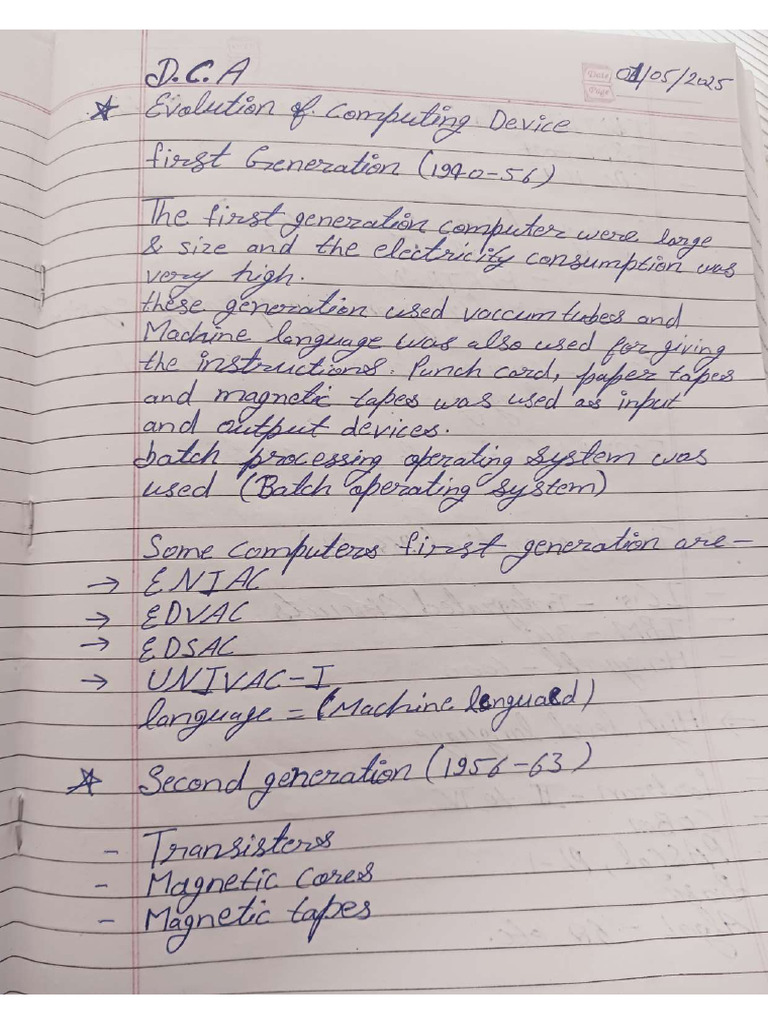 D.C.A
Date
Page
01/05/2025
Evolution of Computing Device
first Generation (1940-56)
The first generation computer were large
& size and the electricity consumption was
very high.
these generation used vaccum tubes and
Machine language was also used for giving
the instructions. Punch card, paper tapes
and magnetic tapes was used as input
and output devices.
batch processing operating system was
used (Batch operating system)
Some computers first generation are-
→ ENIAC
→ EDVAC
→ EDSAC
→ UNIVAC-I
language = (Machine lenguaed)
Second generation (1956-63)
- Transisters
- Magnetic Cores
- Magnetic tapes